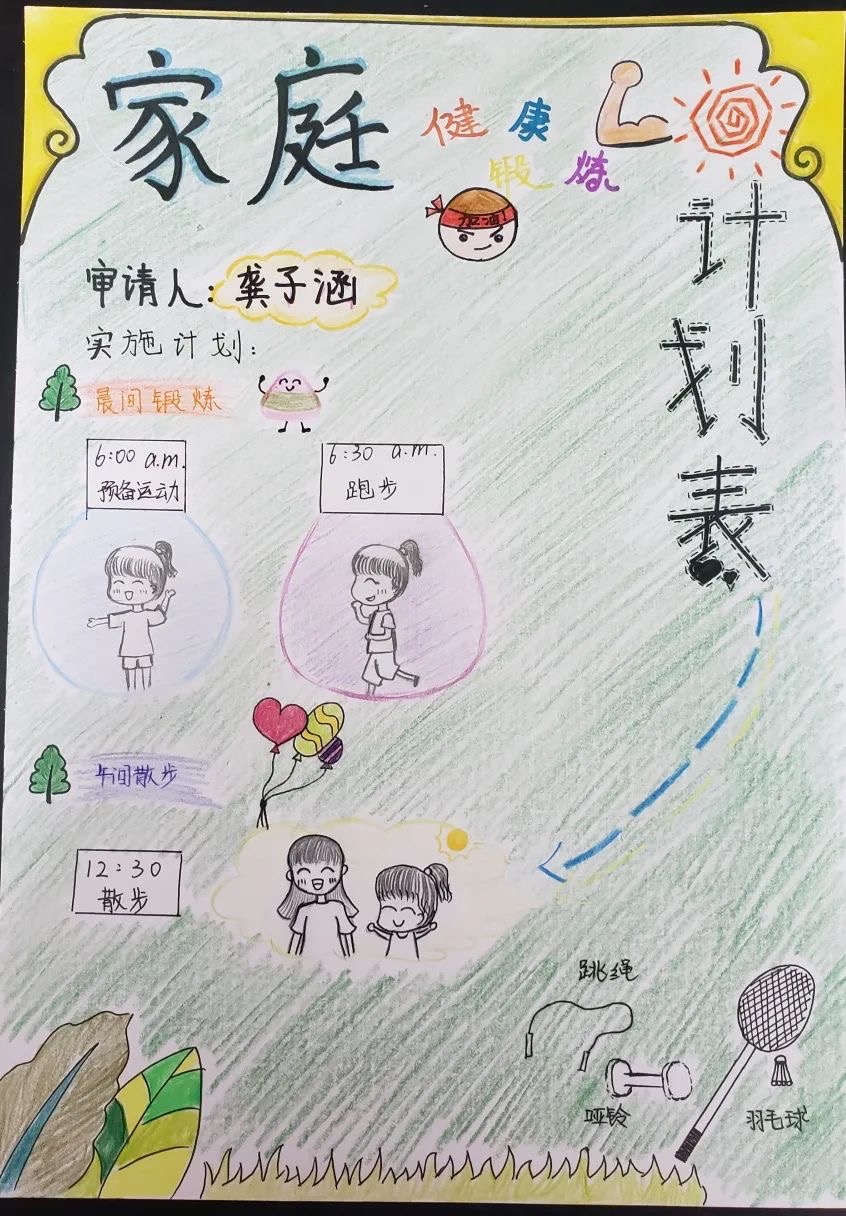 家庭
健康
锻炼
加油!
计划表
申请人:龚子涵
实施计划:
晨间锻炼
6:00 a.m.
预备运动
6:30 a.m.
跑步
午间散步
12:30
散步
跳绳
哑铃
羽毛球